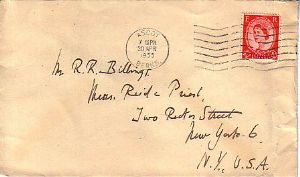 ASCOT
30 APR
1955
BERKS
E R
Mr R. R. Billings,
Messrs. Reid & Priest,
Two Rector Street
New York 6.
N.Y., U.S.A.